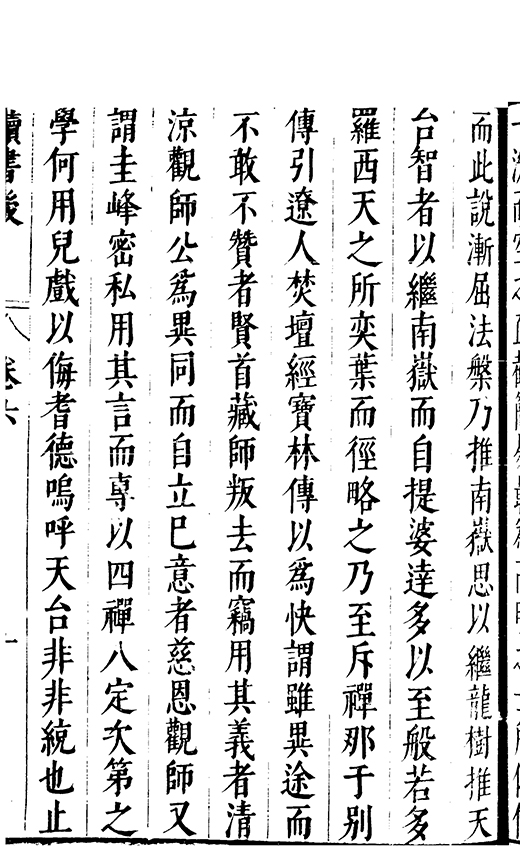 而此說漸屈法槃乃推南嶽思以繼龍樹推天
台智者以繼南嶽而自提婆達多以至般若多
羅西天之所奕葉而徑略之乃至斥禪那于別
傳引遼人焚壇經寶林傳以爲快謂雖異途而
不敢不贊者賢首藏師叛去而竊用其義者清
涼觀師公爲異同而自立已意者慈恩觀師又
謂圭峰密私用其言而專以四禪八定次第之
學何用兒戲以侮耆德嗚呼天台非非統也止
讀書後 卷六